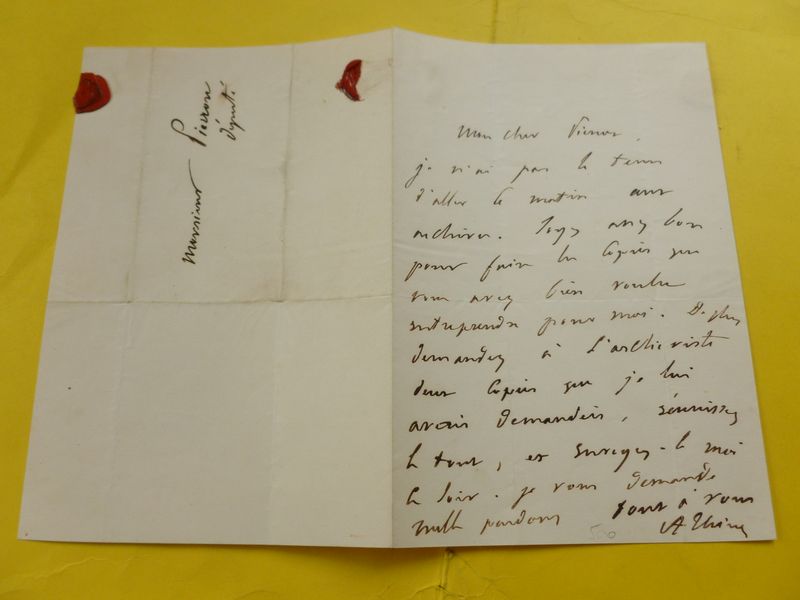 Monsieur Pierron
député
Mon cher Pierron,
je n'ai pas le tems
d'aller ce matin aux
archives. Soyez assez bon
pour faire les copies que
vous avez bien voulu
entreprendre pour moi. De plus
demandez à l'archiviste
deux copies que je lui
avais demandées, réunissez
le tout, et envoyez-le moi
ce soir. je vous demande
mille pardons tout à vous
A Thiers
500